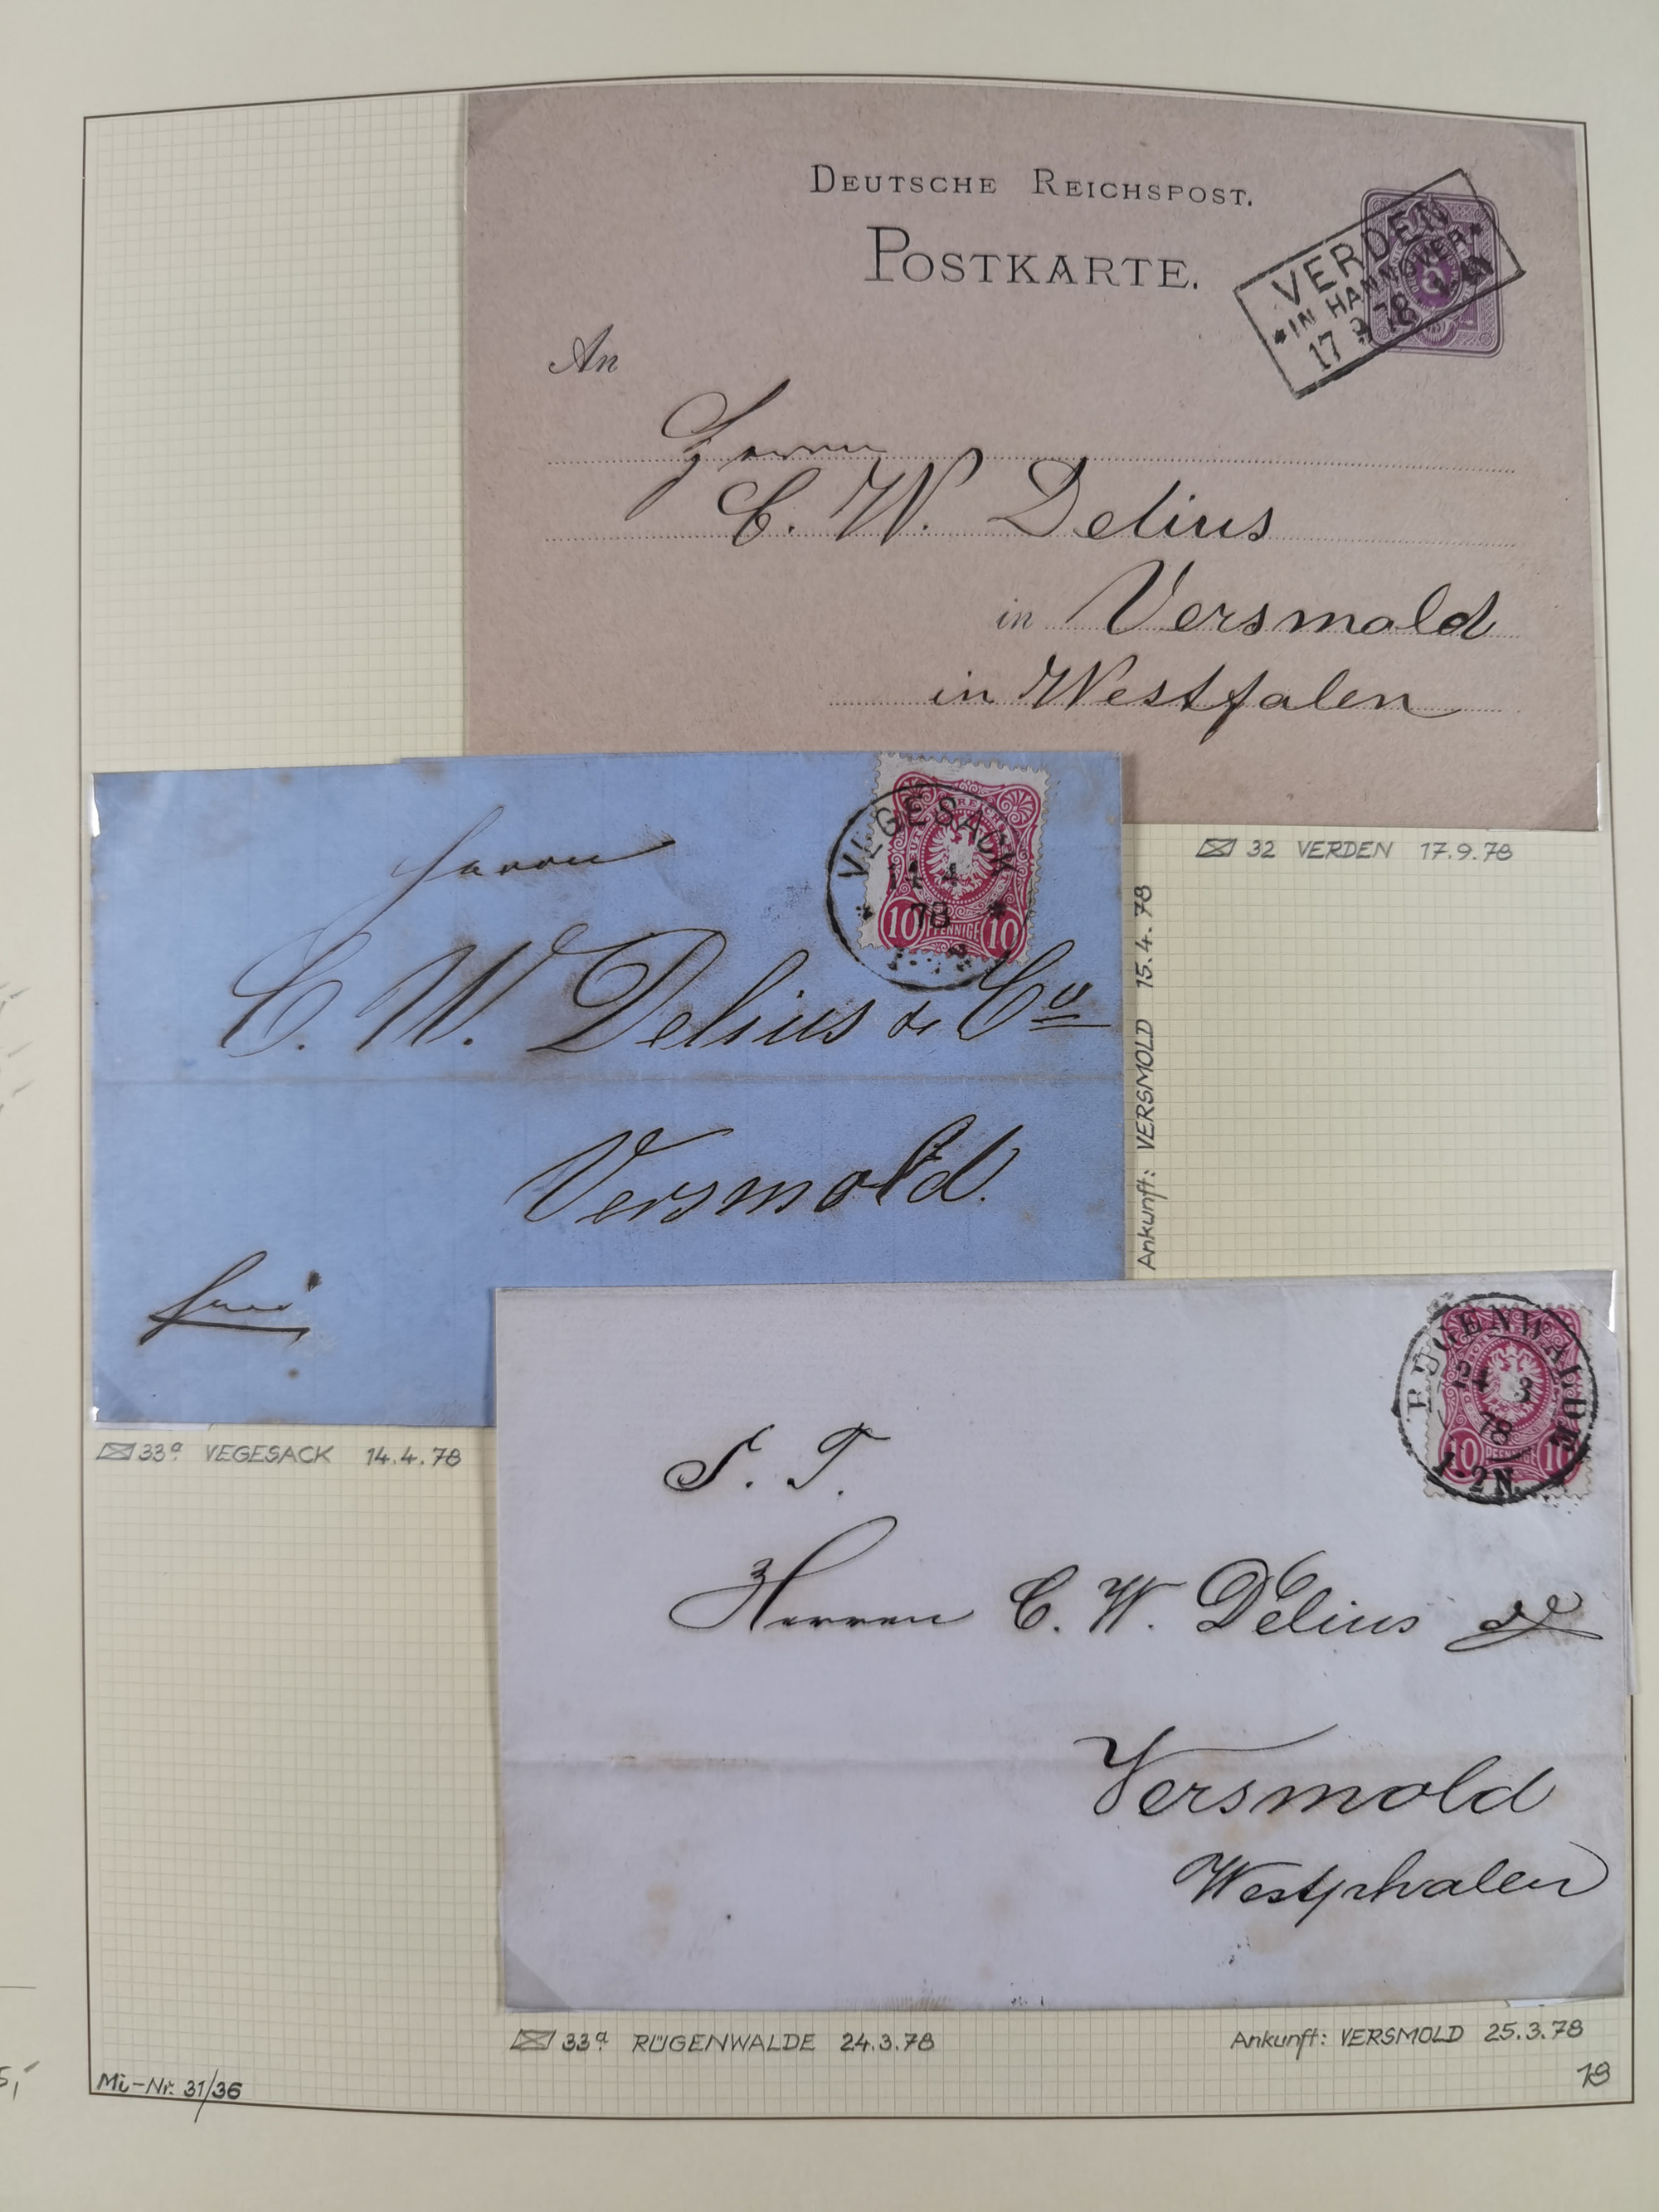 DEUTSCHE REICHSPOST.
POSTKARTE.
VERDEN
*IN HANNOVER*
17 9 78
An
Herrn
C. W. Delius
in Versmold
in Westfalen
32 VERDEN 17.9.78
VEGESACK
14 4
78
10 PFENNIGE 10
Herren
C. W. Delius & Co
Versmold.
frei
Ankunft: VERSMOLD 15.4.78
33a VEGESACK 14.4.78
RÜGENWALDE
24 3
78
1-2N.
10 PFENNIGE 10
S. T.
Herren C. W. Delius &
Versmold
Westphalen
33a RÜGENWALDE 24.3.78
Ankunft: VERSMOLD 25.3.78
Mi-Nr. 31/36